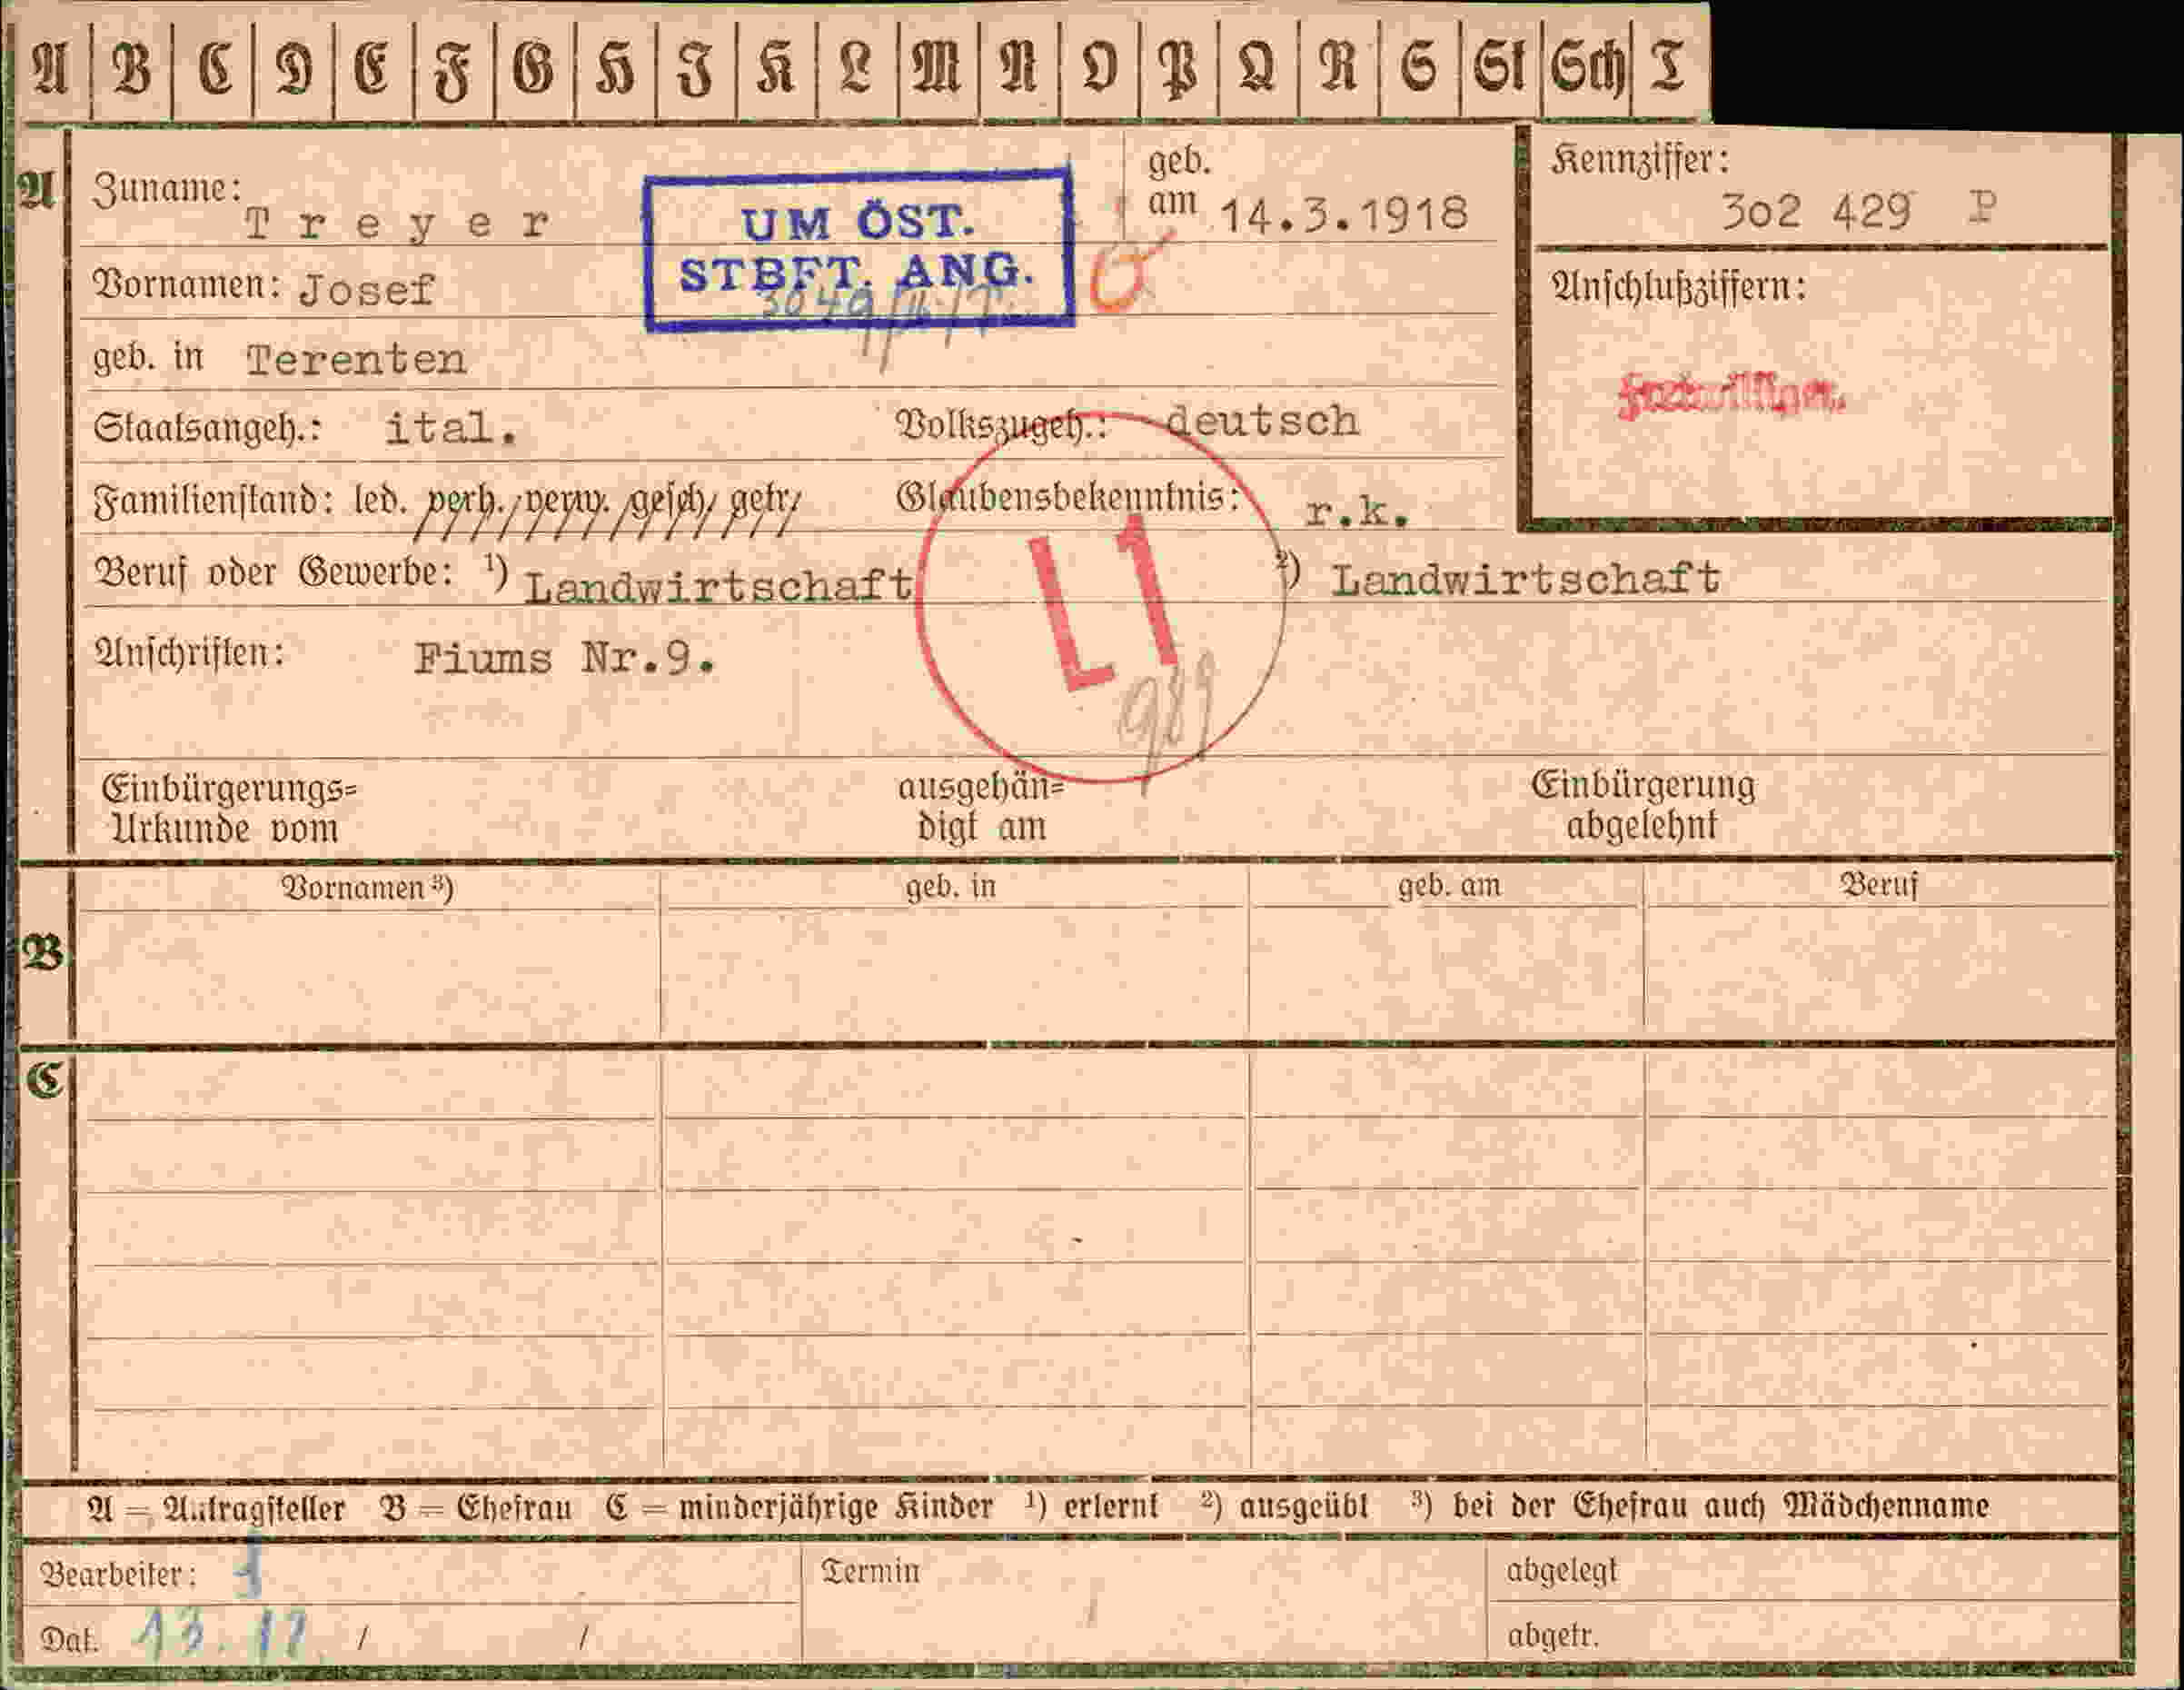 A B C D E F G H I K L M N O P Q R S St Sch T
A
Zuname: Treyer
geb. am 14.3.1918
Kennziffer: 3o2 429 P
UM ÖST.
STBFT. ANG.
Vornamen: Josef
Anschlußziffern:
geb. in Terenten
Freiwilliger.
Staatsangeh.: ital.
Volkszugeh.: deutsch
Familienstand: led. verh. verw. gesch. getr.
Glaubensbekenntnis: r.k.
L1
Beruf oder Gewerbe: ¹) Landwirtschaft ²) Landwirtschaft
Anschriften: Fiums Nr.9.
989
Einbürgerungs=
Urkunde vom
ausgehän=
digt am
Einbürgerung
abgelehnt
B
Vornamen ³) geb. in geb. am Beruf
C
A = Antragsteller B = Ehefrau C = minderjährige Kinder ¹) erlernt ²) ausgeübt ³) bei der Ehefrau auch Mädchenname
Bearbeiter:
Termin
abgelegt
Dat. 13.12. / /
abgetr.